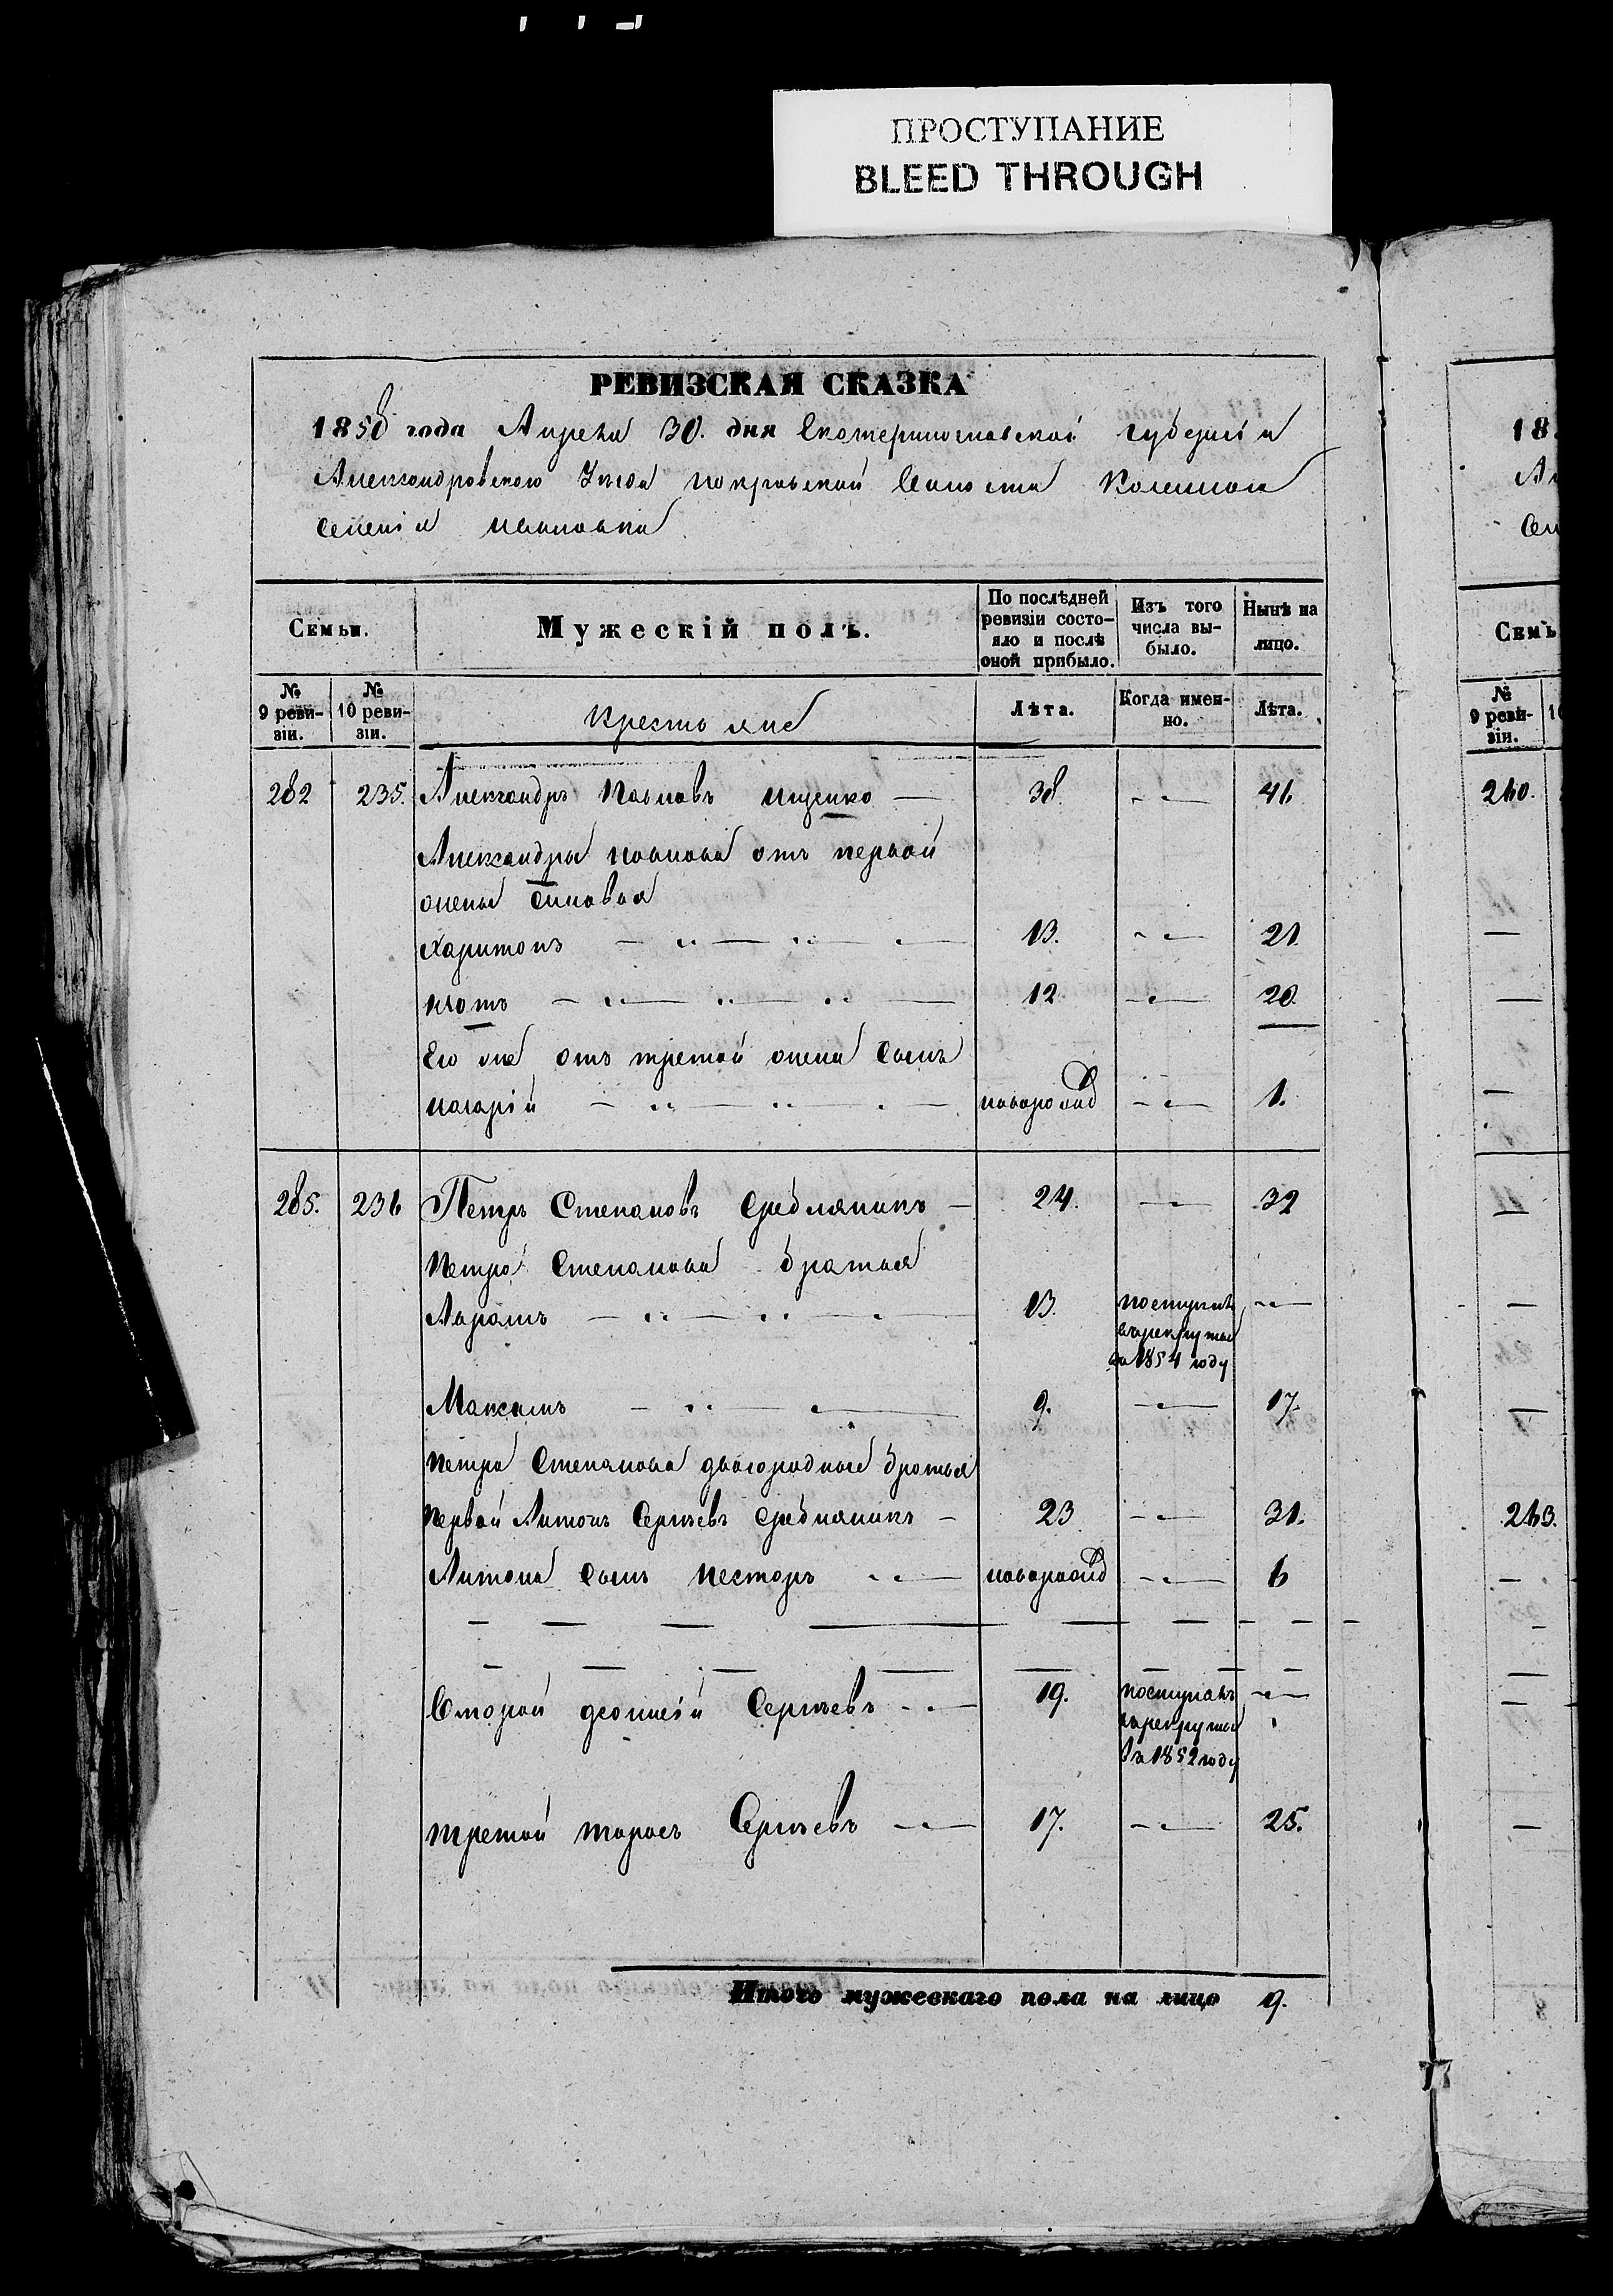 ПРОСТУПАНИЕ
BLEED THROUGH
РЕВИЗСКАЯ СКАЗКА
1858 года Апреля 30. дня Екатеринославской губернiи
Александровского Уезда покровской Волости Казеннаго
селенiя
Семьи.
Мужескiй полъ.
По послѣдней ревизiи состо-
яло и послѣ оной прибыло.
Изъ того числа вы-
было.
Нынѣ на лицо.
№ 9 реви-
зiи.
№ 10 реви-
зiи.
Лѣта.
Когда имен-
но.
Лѣта.
282 235. Александръ Павловъ Ищенко — 38. 46
Александра павлова отъ первой
жены Сыновья
Харитонъ 13. 21.
изотъ 12 20.
Его же отъ третой жены Сынъ
макарiй новорожд 1.
285. 236 Петръ Степановъ Среблянинъ — 24. 32
Петра Степанова братья
Авромъ 13. поступилъ
в рекруты
в 1854 году
Максимъ 9. 17.
петра Степанова двоюродные братья
первой Антонъ Сергѣевъ Среблянинъ — 23 31.
Антона Сынъ Несторъ новорожд 6
Второй Сергѣевъ 19. поступилъ
в рекруты
въ 1852 году
третой тарасъ Сергѣевъ 17. 25.
Итого мужескаго пола на лицо 9.
18
Семь
№ 9 реви-
зiи.
240.
243.